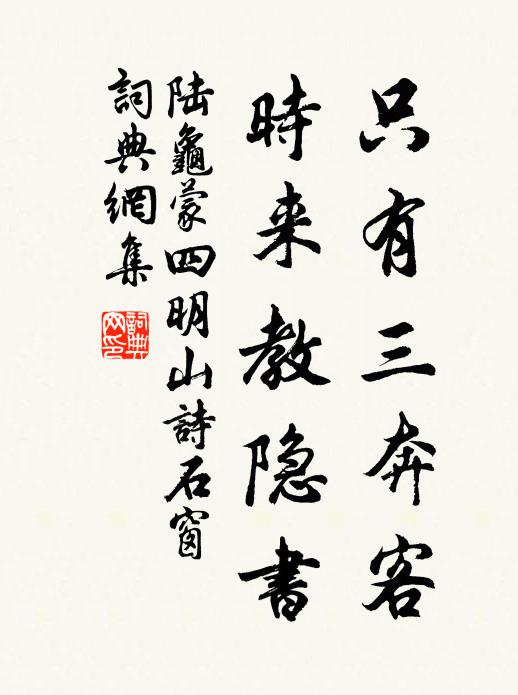 只有三奔客
時来教隐書
陆龜蒙四明山詩石窗
詞典網集
詞典
网印